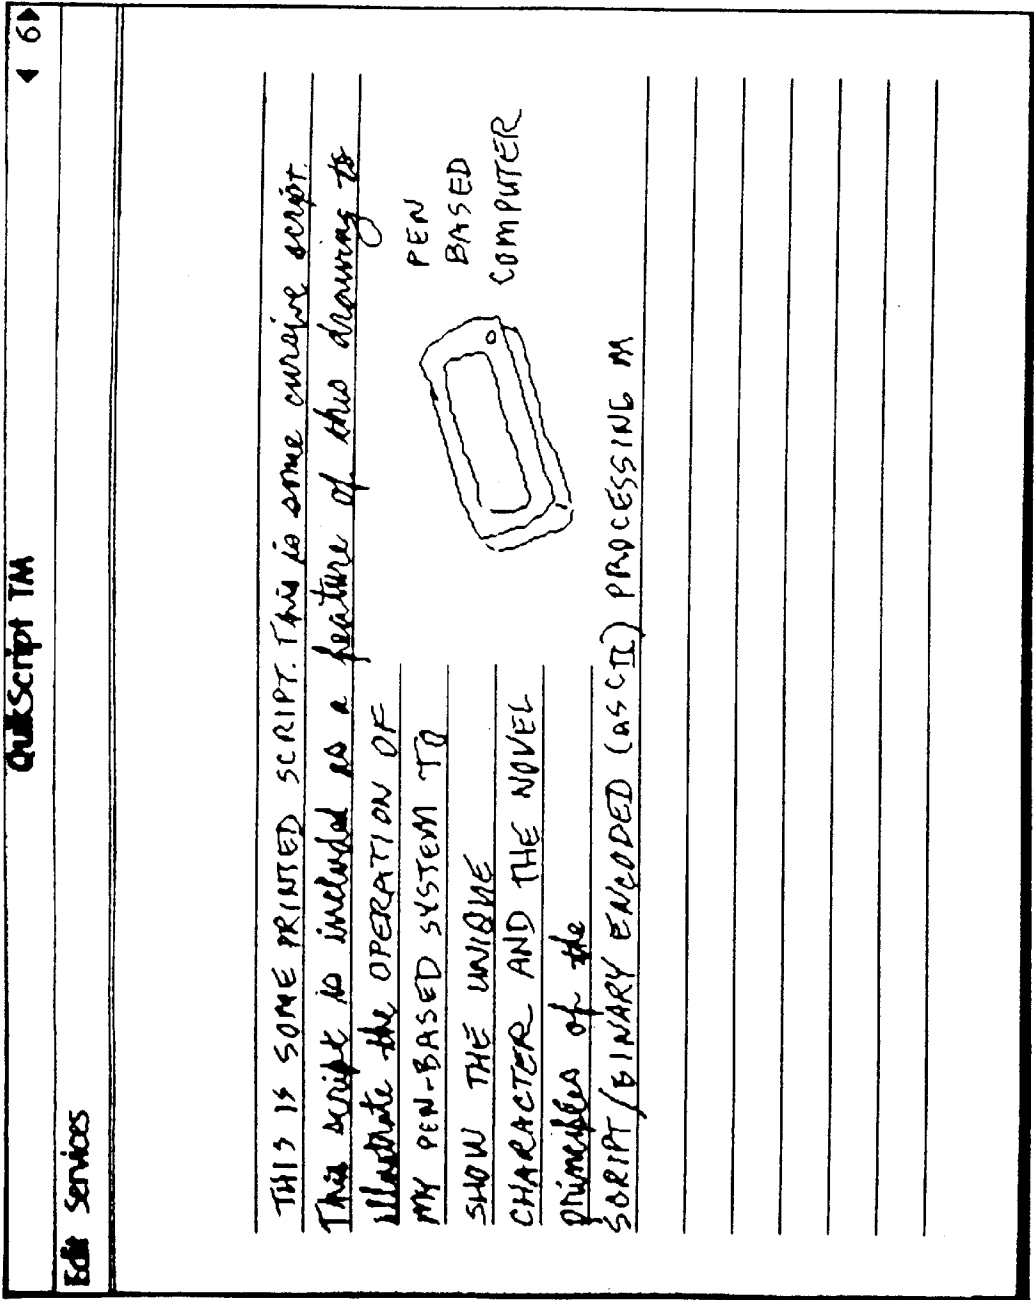 QuikScript TM
◀ 6 ▶
Edit Services
THIS IS SOME PRINTED SCRIPT. This is some cursive script.
This script is included as a feature of this drawing to
illustrate the OPERATION OF
MY PEN-BASED SYSTEM TO
SHOW THE UNIQUE
CHARACTER AND THE NOVEL
principles of the
SCRIPT/BINARY ENCODED (ASCII) PROCESSING M
PEN
BASED
COMPUTER